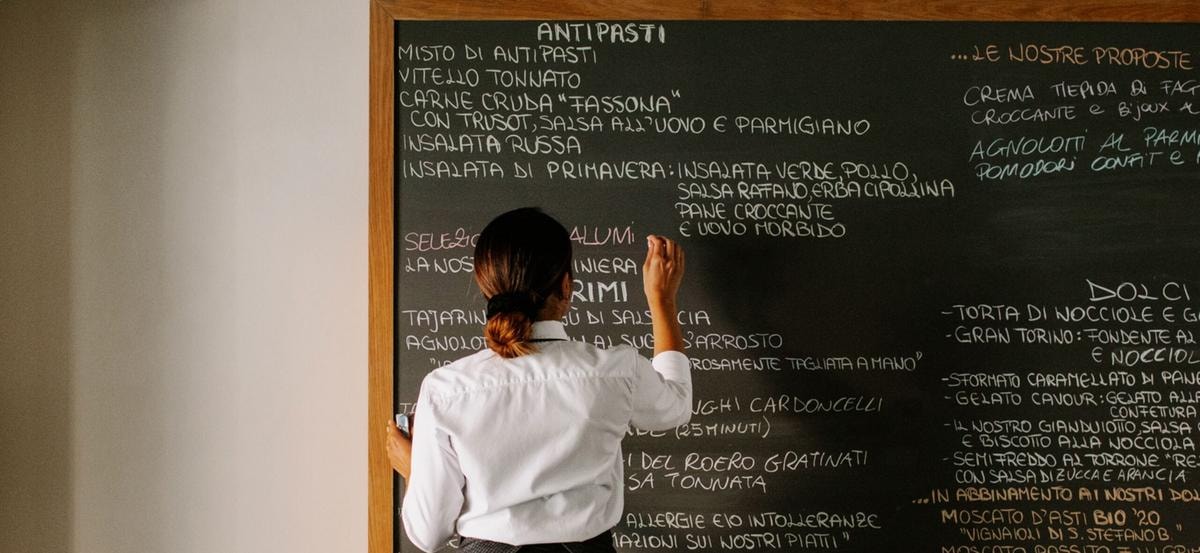 ANTIPASTI
MISTO DI ANTIPASTI
VITELLO TONNATO
CARNE CRUDA "FASSONA"
CON TRUSOT, SALSA ALL'UOVO E PARMIGIANO
INSALATA RUSSA
INSALATA DI PRIMAVERA: INSALATA VERDE, POLLO,
SALSA RAFANO, ERBA CIPOLLINA
PANE CROCCANTE
E UOVO MORBIDO
SELEZIO ALUMI
LA NOST INIERA
RIMI
TAJARIN GÙ DI SALS CIA
AGNOLOT AL SUG D'ARROSTO
OROSAMENTE TAGLIATA A MANO"
NGHI CARDONCELLI
(25 MINUTI)
I DEL ROERO GRATINATI
SA TONNATA
ALLERGIE E\O INTOLLERANZE
AZIONI SUI NOSTRI PIATTI"
...LE NOSTRE PROPOSTE
CREMA TIEPIDA DI FAG
CROCCANTE e BIJOUX A
AGNOLOTTI AL PARMI
POMODORI CONFIT E
DOLCI
-TORTA DI NOCCIOLE E G
-GRAN TORINO: FONDENTE AL
E NOCCIOL
-SFORMATO CARAMELLATO DI PANE
-GELATO CAVOUR: GELATO ALLA
CONFETTURA
-IL NOSTRO GIANDUIOTTO, SALSA
E BISCOTTO ALLA NOCCIOLA
-SEMIFREDDO AL TORRONE "RE
CON SALSA DI ZUCCA E ARANCIA
...IN ABBINAMENTO AI NOSTRI DOL
MOSCATO D'ASTI BIO '20
"VIGNAIOLI DI S. STEFANO B."
MOSCATO PASSITO